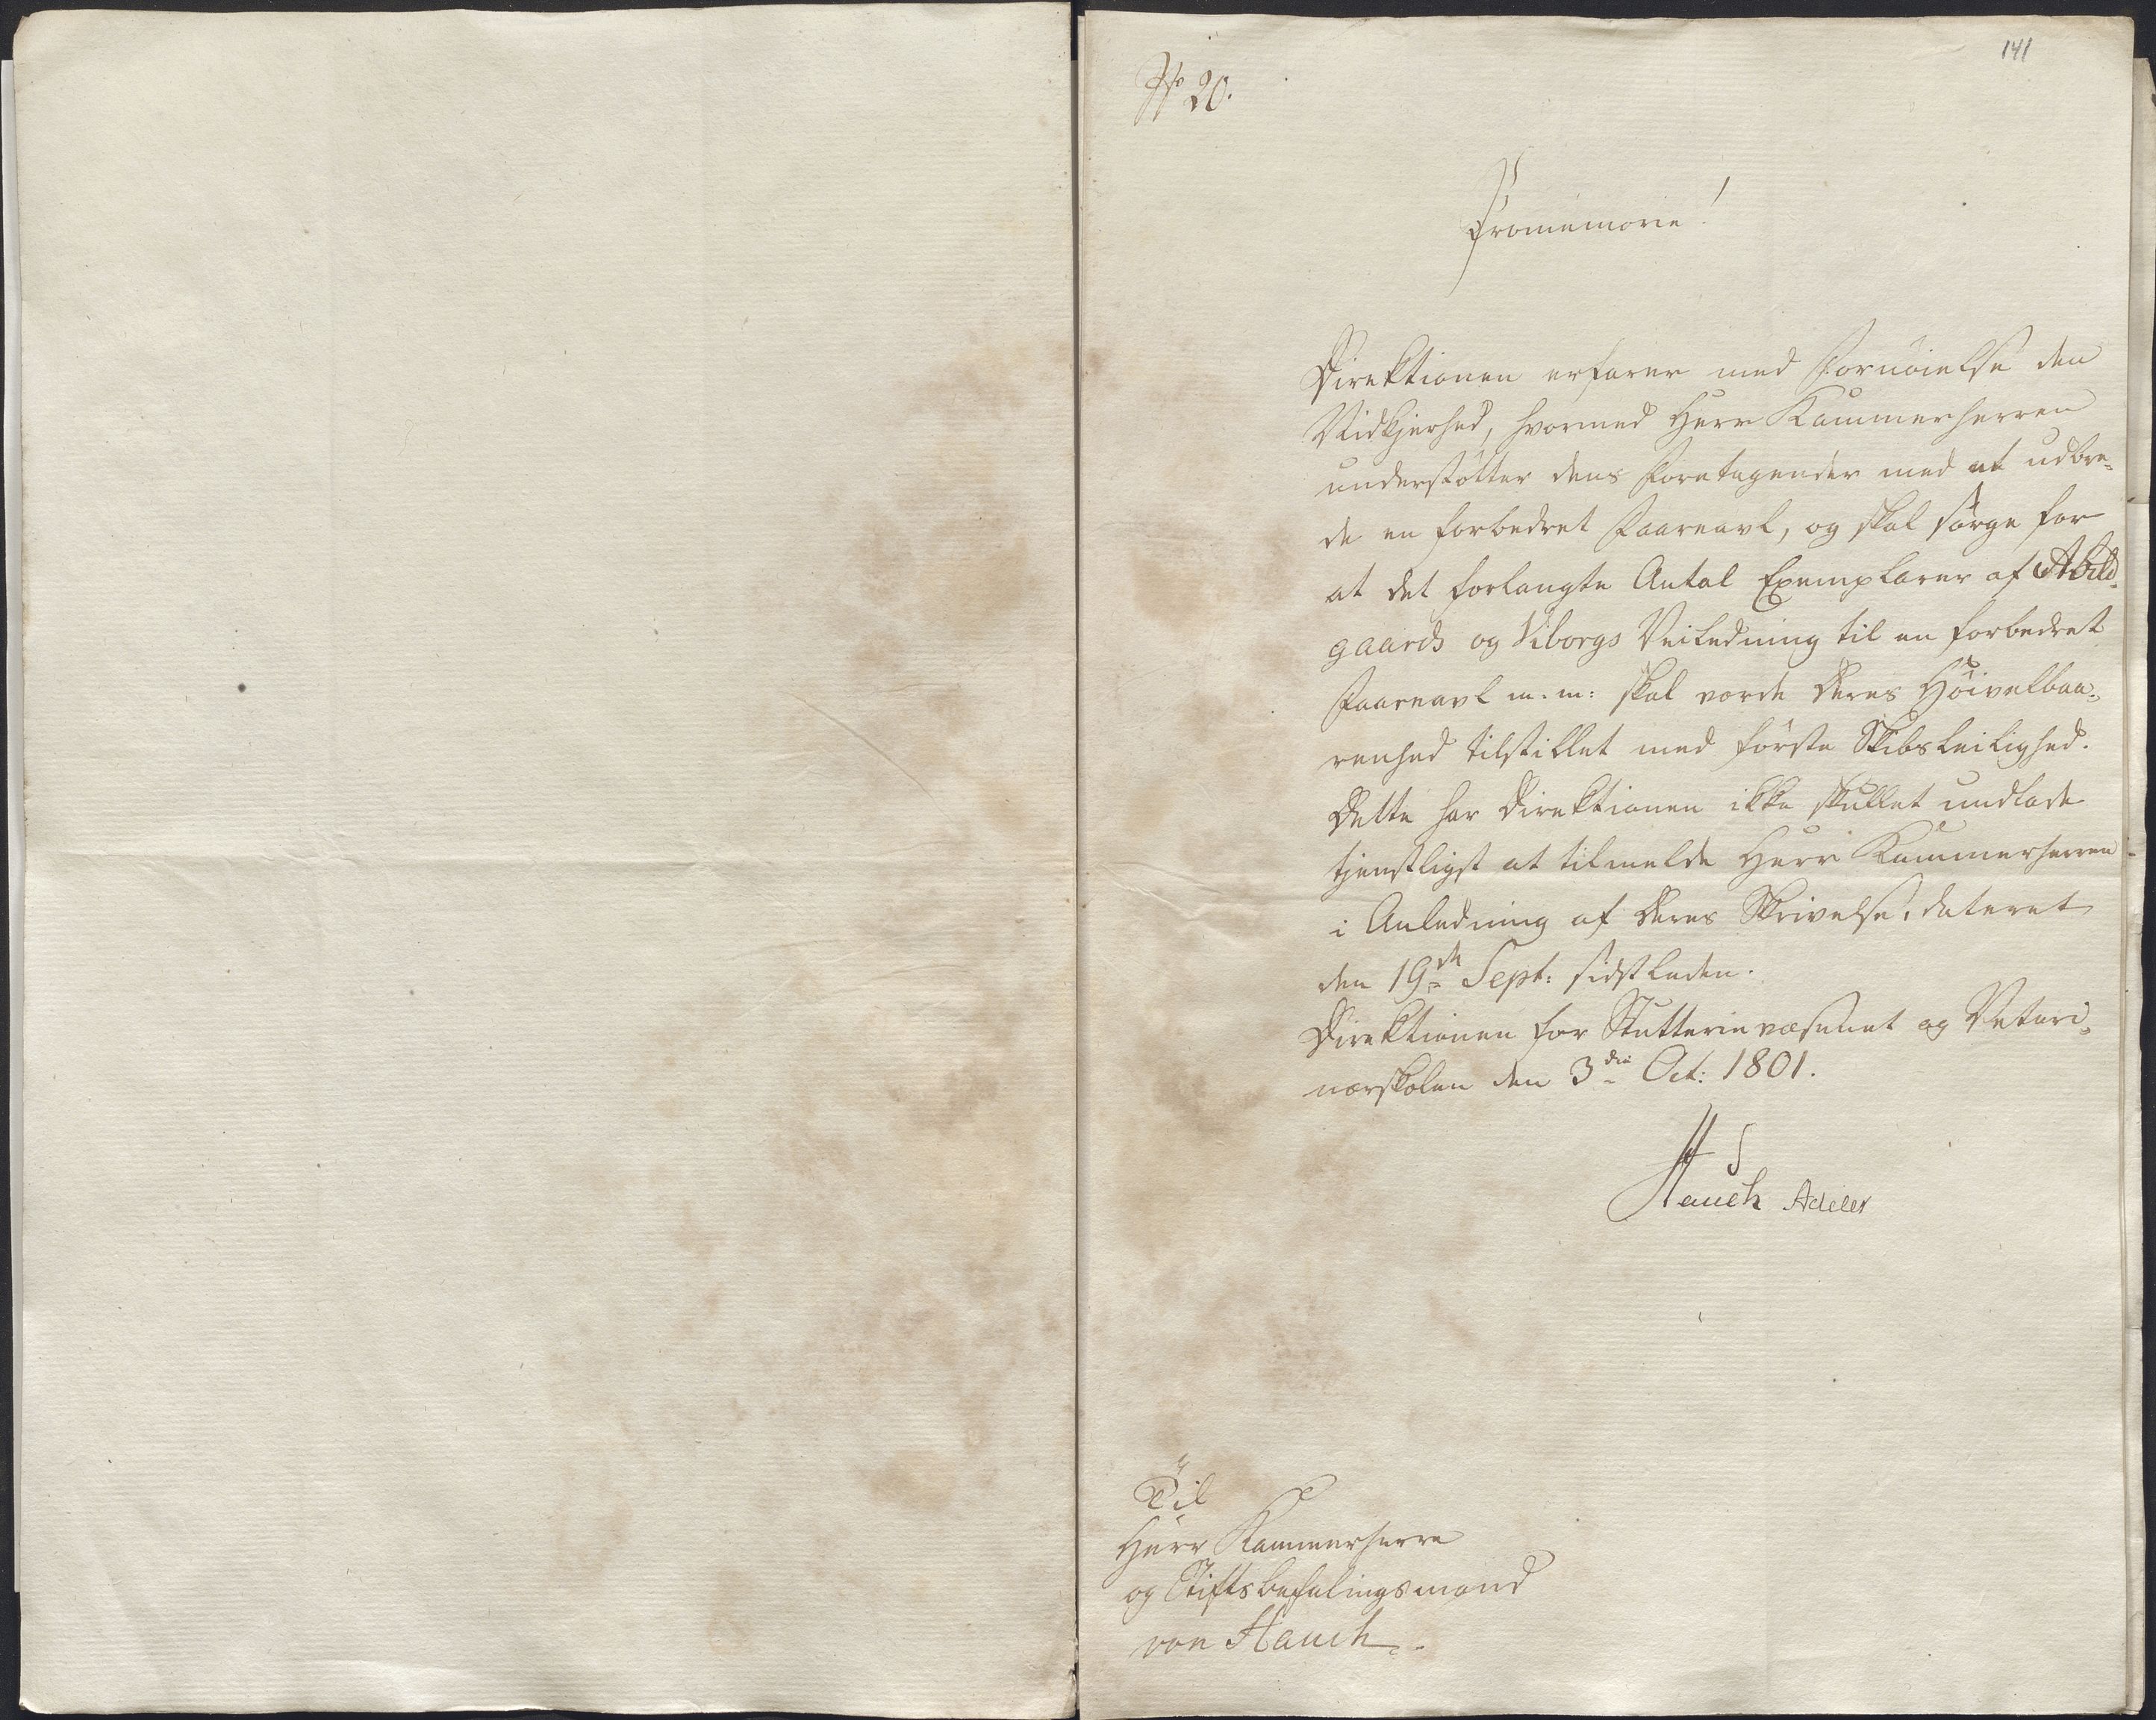 141
No 20.
Promemorie!
Direktionen erfarer med Fornöielse den
Nidkjerhed, hvormed Herr Kammerherren
understötter dens Foretagender med at udbre-
de en forbedret Faareavl, og skal sörge for
at det forlangte Antal Exemplarer af Abild-
gaards og Viborgs Veiledning til en forbedret
Faareavl m: m: skal vorde Deres Höivelbaa-
renhed tilstillet med förste Skibsleilighed.
Dette har Direktionen ikke skullet undlade
tjenstligst at tilmelde Herr Kammerherren
i Anledning af Deres Skrivelse, dateret
den 19de Sept: sidstleden.
Direktionen for Stutterievæsenet og Veteri-
nærskolen den 3die Oct: 1801.
Hauch Adeler
Til
Herr Kammerherre
og Stiftsbefalingsmand
von Hauch.